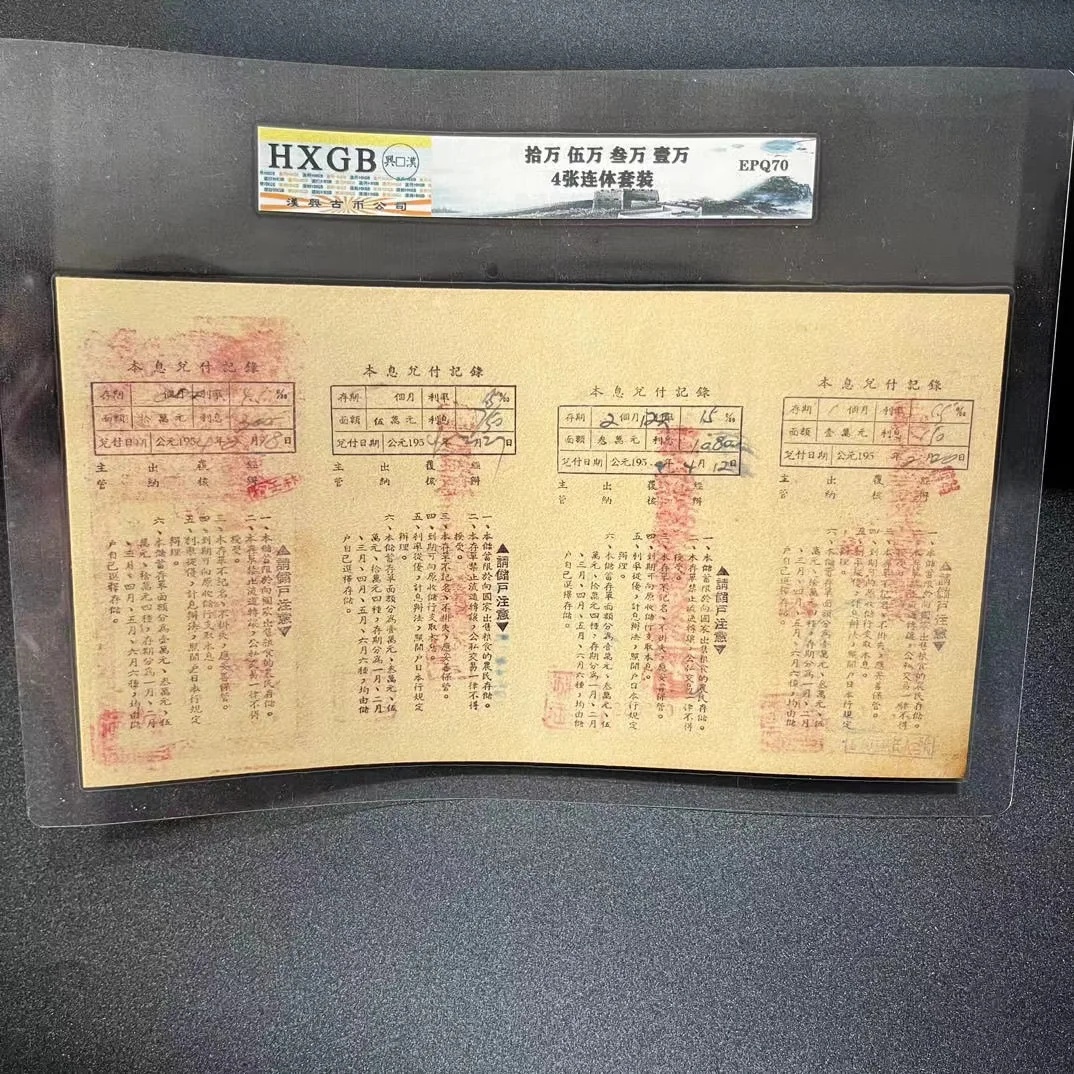 HXGB
興 漢
漢興古币公司
拾万 伍万 叁万 壹万
4张连体套装
EPQ70
本息兌付記錄
存期 個月 利率 ‰
面額 拾萬元 利息
兌付日期 公元195 年 月 日
主管 出納 覆核 經辦
▲請儲戶注意▼
一、本儲蓄限於向國家出售粮食的農民存儲。
二、本存單禁止流通轉讓，公私交易一律不得
接受。
三、本存單不記名、不掛失，應妥善保管。
四、到期可向原收儲行支取本息。
五、利率從優，計息辦法，照開戶日本行規定
辦理。
六、本儲蓄存單面額分為壹萬元、叁萬元、伍
萬元、拾萬元四種，存期分為一月、二月
、三月、四月、五月、六月六種，均由儲
戶自己選擇存儲。
本息兌付記錄
存期 個月 利率 15‰
面額 伍萬元 利息 750
兌付日期 公元195 年 月 27日
主管 出納 覆核 經辦
▲請儲戶注意▼
一、本儲蓄限於向國家出售粮食的農民存儲。
二、本存單禁止流通轉讓，公私交易一律不得
接受。
三、本存單不記名、不掛失，應妥善保管。
四、到期可向原收儲行支取本息。
五、利率從優，計息辦法，照開戶日本行規定
辦理。
六、本儲蓄存單面額分為壹萬元、叁萬元、伍
萬元、拾萬元四種，存期分為一月、二月
、三月、四月、五月、六月六種，均由儲
戶自己選擇存儲。
本息兌付記錄
存期 2個月12天 15‰
面額 叁萬元 利息 1080
兌付日期 公元195 年4月12日
主管 出納 覆核 經辦
▲請儲戶注意▼
一、本儲蓄限於向國家出售粮食的農民存儲。
二、本存單禁止流通轉讓，公私交易一律不得
接受。
三、本存單不記名、不掛失，應妥善保管。
四、到期可向原收儲行支取本息。
五、利率從優，計息辦法，照開戶日本行規定
辦理。
六、本儲蓄存單面額分為壹萬元、叁萬元、伍
萬元、拾萬元四種，存期分為一月、二月
、三月、四月、五月、六月六種，均由儲
戶自己選擇存儲。
本息兌付記錄
存期 個月 利率 ‰
面額 壹萬元 利息
兌付日期 公元195 年 月 日
主管 出納 覆核 經辦
▲請儲戶注意▼
一、本儲蓄限於向國家出售粮食的農民存儲。
二、本存單禁止流通轉讓，公私交易一律不得
接受。
三、本存單不記名、不掛失，應妥善保管。
四、到期可向原收儲行支取本息。
五、利率從優，計息辦法，照開戶日本行規定
辦理。
六、本儲蓄存單面額分為壹萬元、叁萬元、伍
萬元、拾萬元四種，存期分為一月、二月
、三月、四月、五月、六月六種，均由儲
戶自己選擇存儲。